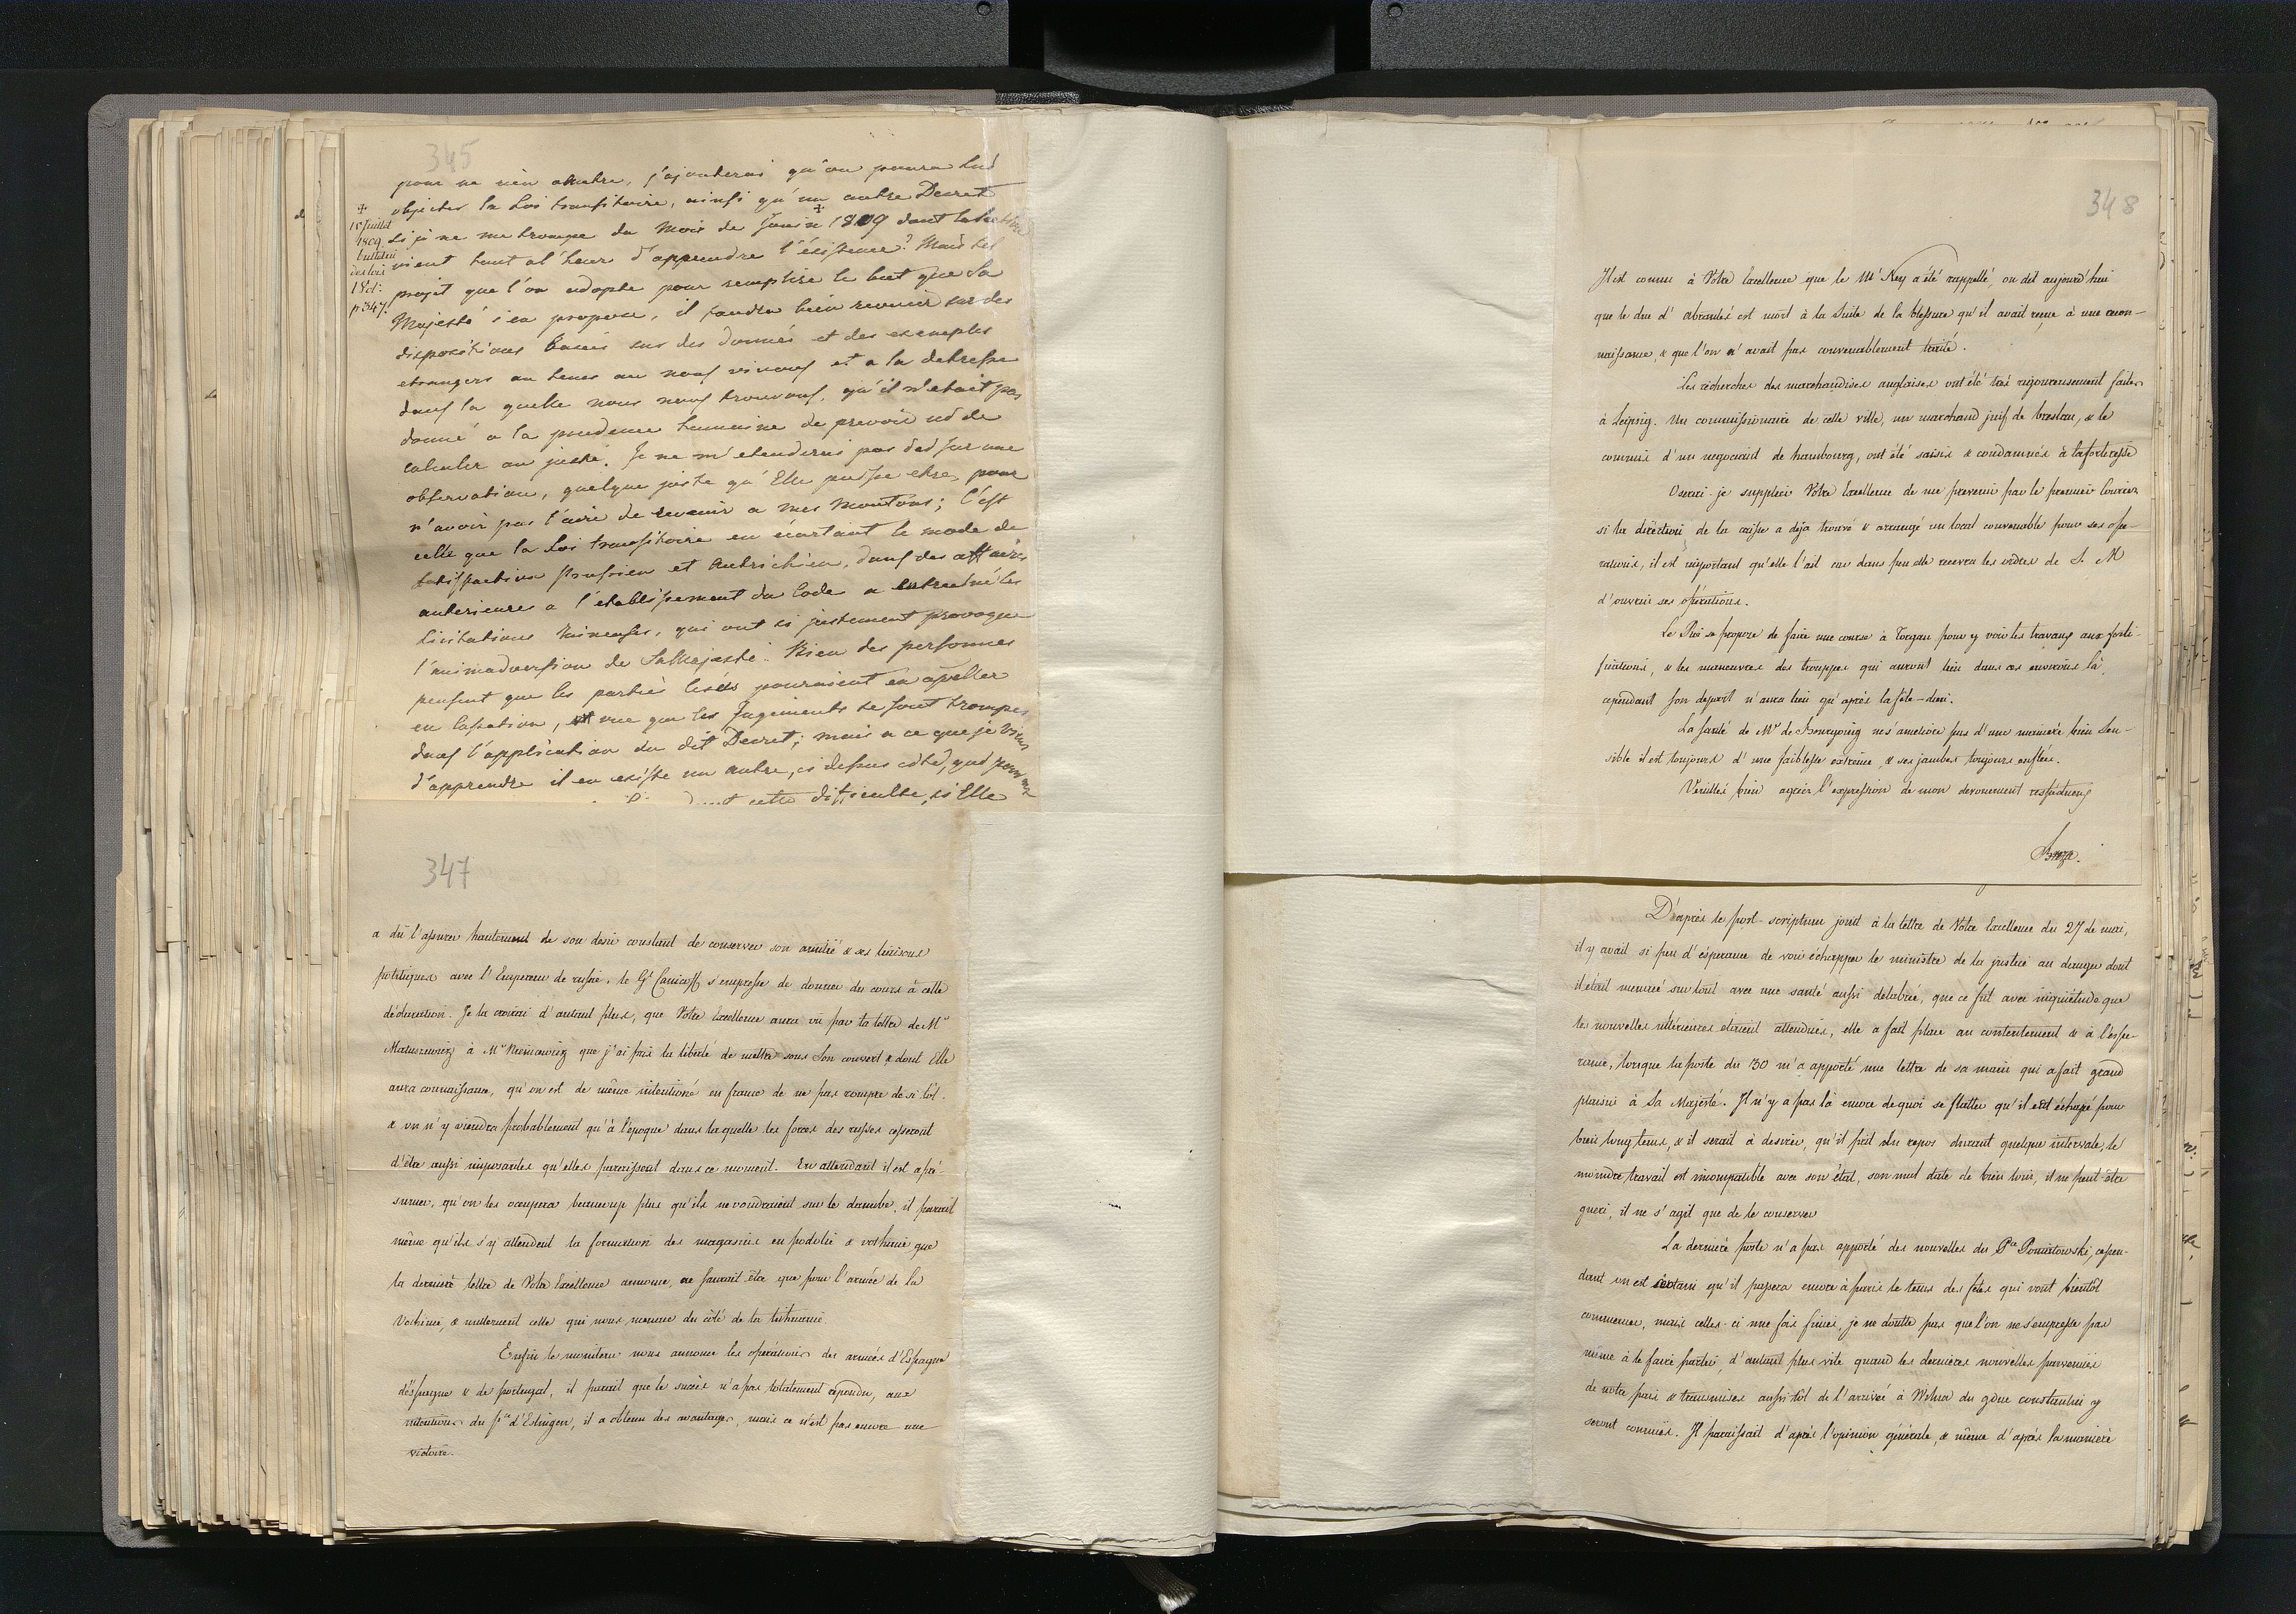 345
pour ne rien omettre, j'ajouterai qu'on poura
objecter la Loi transitoire, ainsi qu'un autre Decret
si je ne me trompe du Mois de Juin 1809 dont
vient tout al'heur d'apprendre l'éxistence? Mais tel
projet que l'on adopte pour remplire le but que Sa
Majesté s'en propose, il faudra bien revenir sur des
dispositions basées sur des données et des exemples
etrangers au tems ou nous vivons et a la detresse
dans la quelle nous nous trouvons, qu'il n'etait pas
donné a la prudence humaine de prevoir ni de
calculer au juste. Je ne m'etenderai pas sur une
observation, quelque juste qu'Elle puisse etre, pour
n'avoir pas l'aire de revenir a mes moutons; C'est
celle que la Loi transitoire en écartant le mode de
satisfaction Prussien et Autrichien, dans des affaires
anterieures a l'etablissement du Code a entrainé les
Licitations Ruineuses, qui ont si justement provoqué
l'animadversion de Sa Majesté. Bien des personnes
pensent que les parties lesées pouraient en apeller
en Cassation, vue que les Jugements se sont trompes
dans l'application du dit Decret; mais a ce que je viens
d'apprendre il en existe un autre, ci dessus cité, qui
cette difficulte, si Elle
+
Juillet
1809
bulletin
des lois
18d:
p 347.
347
a dû l'assurer hautement de son desir constant de conserver son amitié & ses liaisons
politiques avec l'Empereur de russie, le Gl Canicoff s'empresse de donner du cours à cette
déclaration. Je la croirai d'autant plus, que Votre Excellence aura vû par la lettre de Mr
Matuszewicz à Mr Niemcewicz que j'ai pris la liberté de mettre sous Son couvert & dont Elle
aura connaissance, qu'on est de même intentioné en france de ne pas rompre de si tôt.
& on n'y viendra probablement qu'à l'époque dans laquelle les forces des russes cesseront
d'être aussi imposantes qu'elles paraissent dans ce moment. En attendant il est a pré-
sumer, qu'on les occupera beaucoup plus qu'ils ne voudraient sur le danube, il parait
même qu'ils s'y attendent la formation des magasins en podolie & volhinie que
la derniere lettre de Votre Excellence annonce, ne saurait être que pour l'armée de la
Vechinie, & nullement celle qui nous menace du côté de la lithuanie.
Enfin le moniteur nous annonce les opérations des armées d'Espagne
d'éspagne & de portugal, il parait que le succès n'a pas totalement répondu, aux
intentions du Pce d'Eslingen, il a obtenu des avantages, mais ce n'est pas encore une
victoire.
348
Il est connu à Votre Excellence que le Ml Ney a été rappellé, on dit aujourd'hui
que le duc d'abrantés est mort à la Suite de la blessure qu'il avait reçue à une recon-
naissance, & que l'on n'avait pas convenablement traité.
Les récherches des marchandises anglaises ont été trés rigoureusement faites
à Leipsig. Un commissionaire de cette ville, un marchand juif de breslau, & le
commis d'un negociant de hambourg, ont été saisis & condamnés à la forteresse
Oserai-je supplier Votre Excellence de me prevenir par le premier Courier
si la direction de la caisse a déja trouvé & arrangé un local convenable pour ses opé-
rations, il est important qu'elle l'ait car dans peu elle recevra les ordres de S. M
d'ouvrir ses opérations.
Le Roi se propose de faire une course à Torgau pour y voir les travaux aux forti-
fications, & les maneuvres des trouppes qui auront lieu dans ces environs là,
cependant Son depart n'aura lieu qu'après la fête-dieu.
La santé de Mr de Bourgoing ne s'améliore pas d'une maniere bien sen-
sible il est toujours d'une faiblesse extrême, & ses jambes toujours enflées.
Veuillés bien agréer l'expression de mon devouement respectueux
Breza.
D'après le post-scriptum joint à la lettre de Votre Excellence du 27 de mai,
il y avait si peu d'ésperance de voir échapper le ministre de la justice au danger dont
il était menacé surtout avec une santé aussi délabrée, que ce fut avec inquiétude que
les nouvelles ultérieures etaient attendues, elle a fait place au contentement & à l'espe-
rance, lorsque la poste du 30 m'a apporté une lettre de sa main qui a fait grand
plaisir à Sa Majesté. Il n'y a pas là encore dequoi se flatter qu'il est échapé pour
bien longtems, & il serait à desirer, qu'il prit du repos durant quelque intervale, le
moindre travail est incompatible avec son état, son mal date de bien loin, il ne peut-être
gueri, il ne s'agit que de le conserver
La derniere poste n'a pas apporté des nouvelles du Pce Poniatowski, cepen-
dant on est certain qu'il passera encore à paris le tems des fêtes qui vont bientôt
commencer, mais celles-ci une fois finies, je ne doutte pas que l'on ne s'empresse pas
même à le faire partir, d'autant plus vite quand les dernieres nouvelles parvenues
de notre païs & transmises aussitôt de l'arrivée à Wilna du gduc constantin y
seront connues. Il paraissait d'après l'opinion générale, & même d'après la maniere